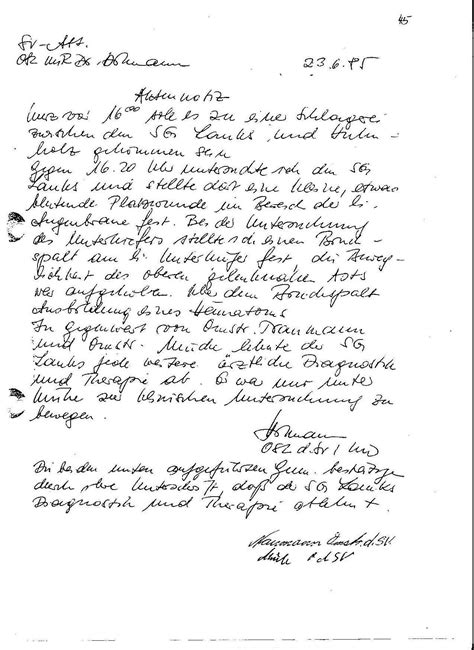 45
SV-Abt.
OSL MR Dr. Hofmann 23.6.85
Aktennotiz
Kurz vor 16⁰⁰ soll es zu einer Schlägerei
zwischen dem SG Lanks und
gekommen sein
Gegen 16.20 Uhr untersuchte ich den SG
Lanks und stellte dort eine kleine, etwas
blutende Platzwunde im Bereich der li.
Augenbraue fest. Bei der Untersuchung
des Unterkiefers stellte ich einen Bruch-
spalt am li. Unterkiefer fest die Beweg-
lichkeit des oberen Asts
war aufgehoben. Über dem Bruchspalt
Ausbildung eines Hämatoms
In Gegenwart von Omstr. Naumann
und Omstr. lehnte der SG
Lanks jede weitere ärztliche Diagnostik
und Therapie ab. Er war nur unter
Mühe zur klinischen Untersuchung zu
bewegen.
Hofmann
OSL d. SV
Die beiden unten aufgeführten Gen. bestätigen
durch ihre Unterschrift, daß der SG Lanks
Diagnostik und Therapie ablehnt.
Naumann Omstr. d. SV
d SV